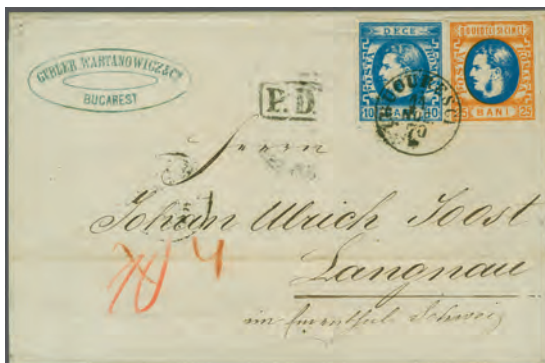 GUBLER WARTANOWICZ & Co
BUCAREST
P.D.
DECE
POSTA
10 BANI 10
POSTA
BANI 25
BUCURESCI
70
Herrn
Johann Ulrich Joost
Langnau
im Emmenthal Schweiz